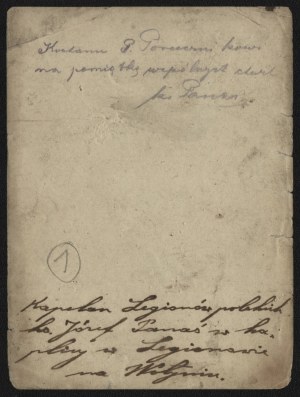 Kochanemu P. Porucznikowi
na pamiątkę wspólnych chwil
ks. Panaś
1
Kapelan Legionów polskich
ks. Józef Panaś w ka-
plicy w Legionowie
na Wołyniu.